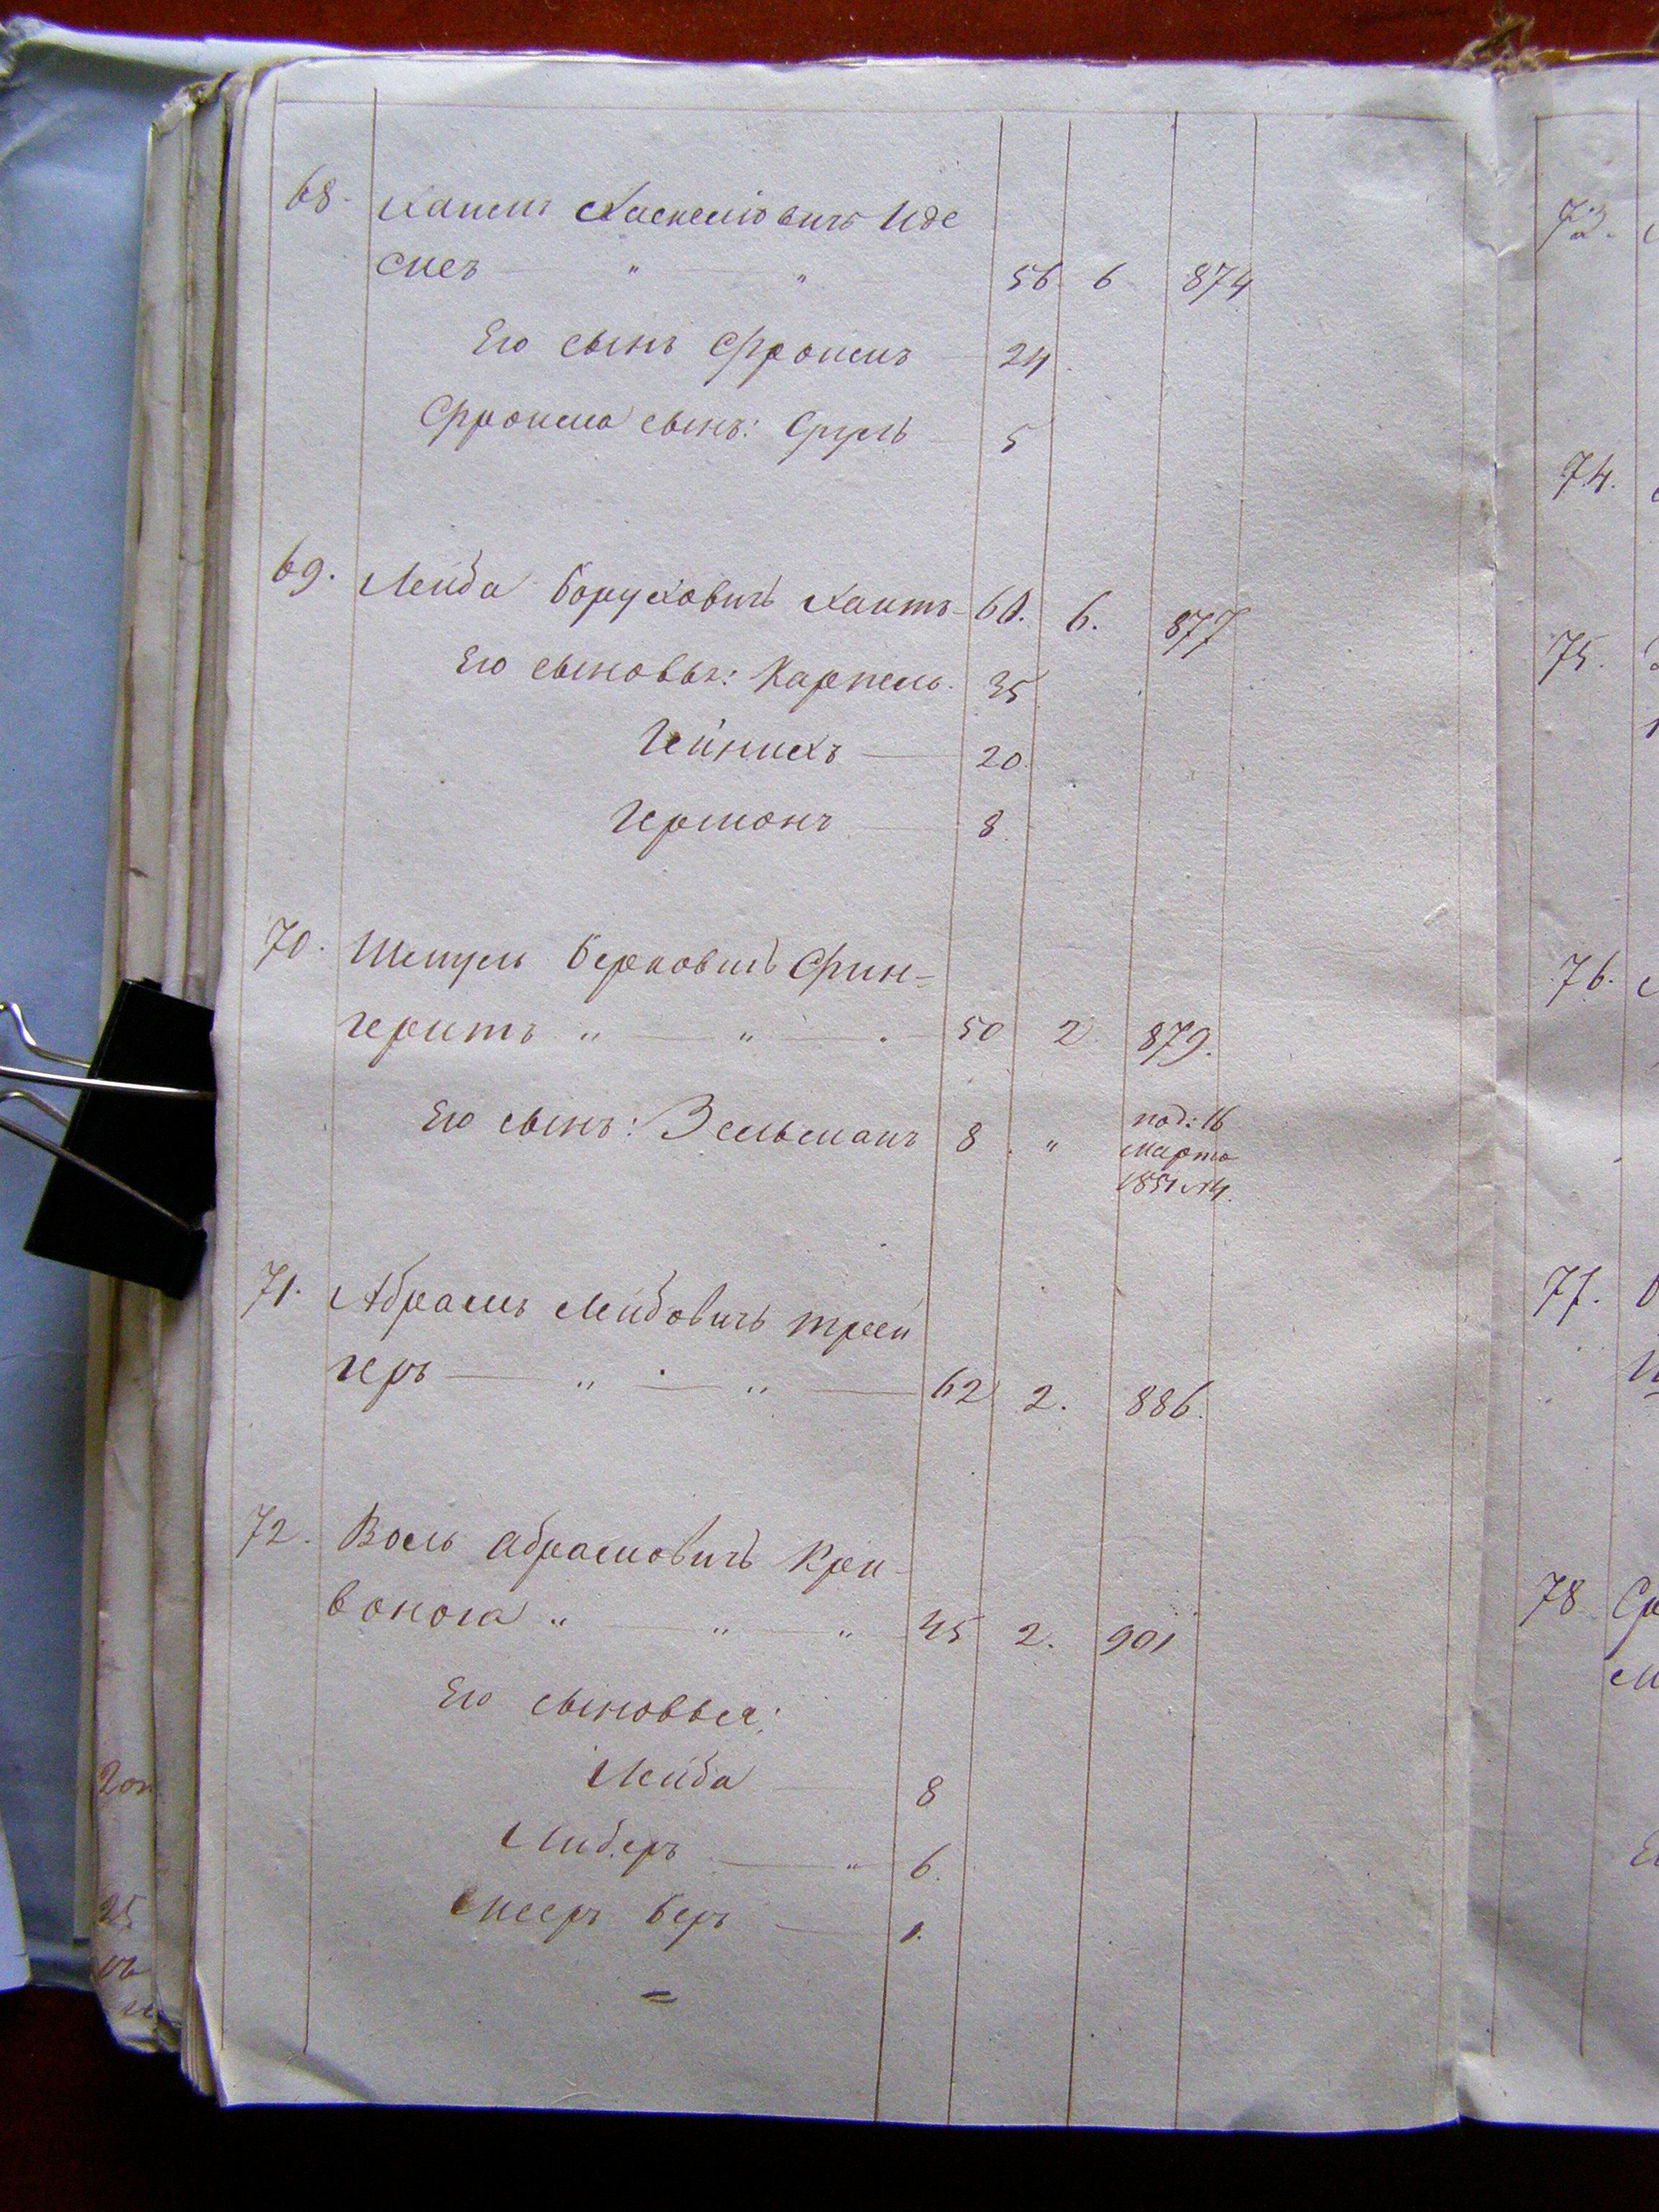 68. Хаимъ Хаскелювичъ Иде
снеъ " " 56 6 874
Его сынъ Фроимъ 24
Фроима сынъ: Сруль 5
69. Лейба Боруховичъ Хаитъ 60. 6. 877
Его сыновья: Карпель 35
Гейнихъ 20
Гершонъ 8
70. Шмуль Берковичъ Фин-
геритъ " " 50 2 879.
Его сынъ: Зельманъ 8 " под: 16
Марта
1851 №4.
71. Абрамъ Лейбовичъ Трей
геръ " " 62 2. 886.
72. Воль Абрамовичъ Кри-
вонога " " " 45 2. 901
Его сыновья:
Лейба 8
Либеръ " 6.
Мееръ Беръ 1.
73.
74.
75.
76.
77.
78 Ср